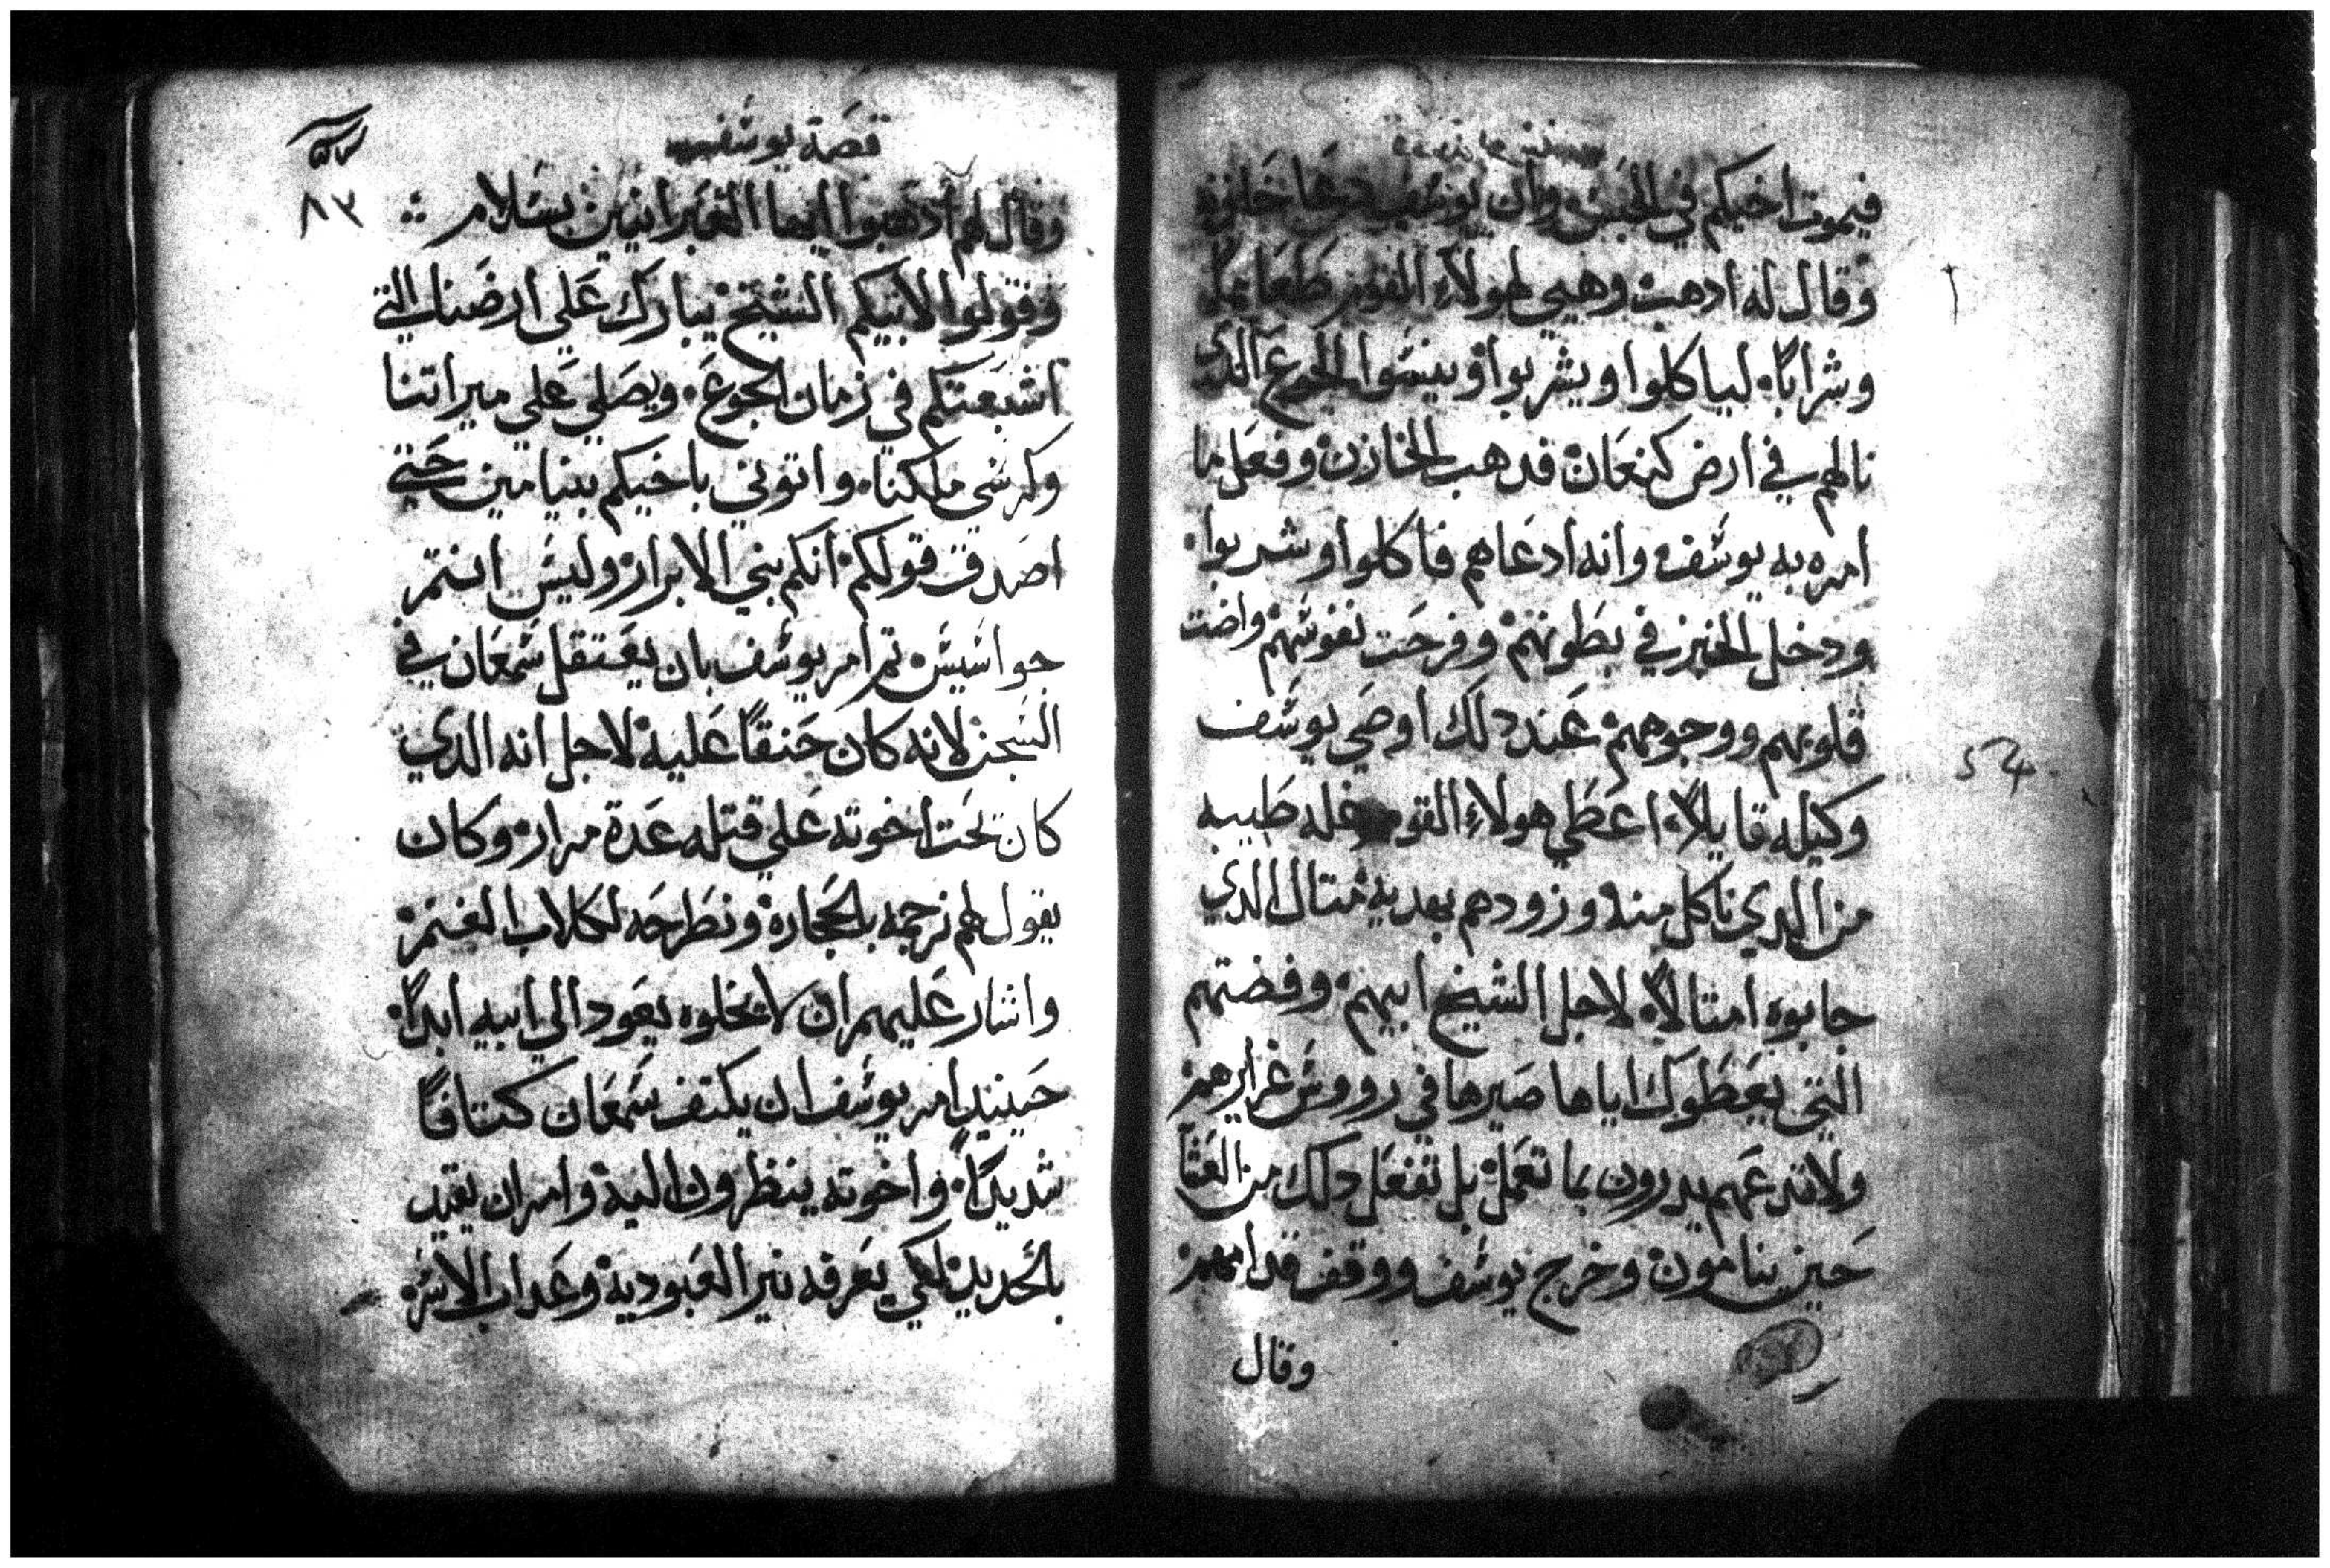 فيموت اخيكم في الحبس وان يوسف دعا خازنه
وقال له ادهب وهيي لهولاء القوم طعاماً
وشراباً ليا كلوا ويشربوا وينسوا الجوع الذي
نالهم في ارض كنعان فدهب الخازن وفعل ما
امره به يوسف وانه ادعاهم فاكلوا وشربوا
ودخل الخبز في بطونهم وفرحت نفوسهم واضت
قلوبهم ووجوههم عند دلك اوصي يوسف
وكيله قايلاً اعطي هولاء القوم غله طيبه
من الدي ناكل منه وزودهم بهديه متال الدي
جابوه امتالاً لاجل الشيخ ابيهم وفضتهم
التي يعطوك اياها صيرها في رووس غرايرهم
ولا تدعهم يدرون بما تعمل بل تفعل دلك من العشا
حين ينامون وخرج يوسف ووقف قدامهم
وقال
قصة يوسف
٨٣
وقال لهم ادهبوا ايها العبرانيين بسلام
وقولوا لابيكم الشيخ يبارك علي ارضنا التي
اشبعتكم في زمان الجوع ويصلي علي ميراتنا
وكرسي ملكنا واتوني باخيكم بنيامين حتي
اصدق قولكم انكم بني الابرار وليس انتم
جواسيس تم امر يوسف بان يعتقل شمعان في
السجن لانه كان حنقاً عليه لاجل انه الدي
كان يحت اخوته علي قتله عدة مرار وكان
يقول لهم نرجمه بالحجارة ونطرحه لكلاب الغنم
واشار عليهم ان لا يخلوه يعود الي ابيه ابداً
حينيد امر يوسف ان يكتف شمعان كتافاً
شديداً واخوته ينظرون اليه وامر ان يقيد
بالحديد لكي يعرفه نير العبودية وعداب الاسر